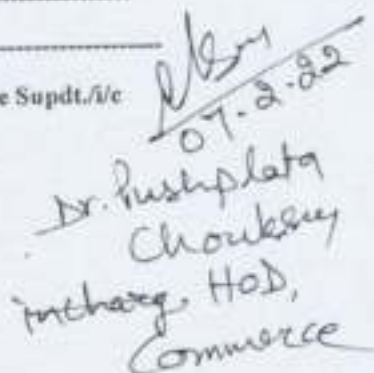 e Supdt./i/c
07-2-22
Dr. Pushplata
Chouksey
Incharg. HOD,
Commerce